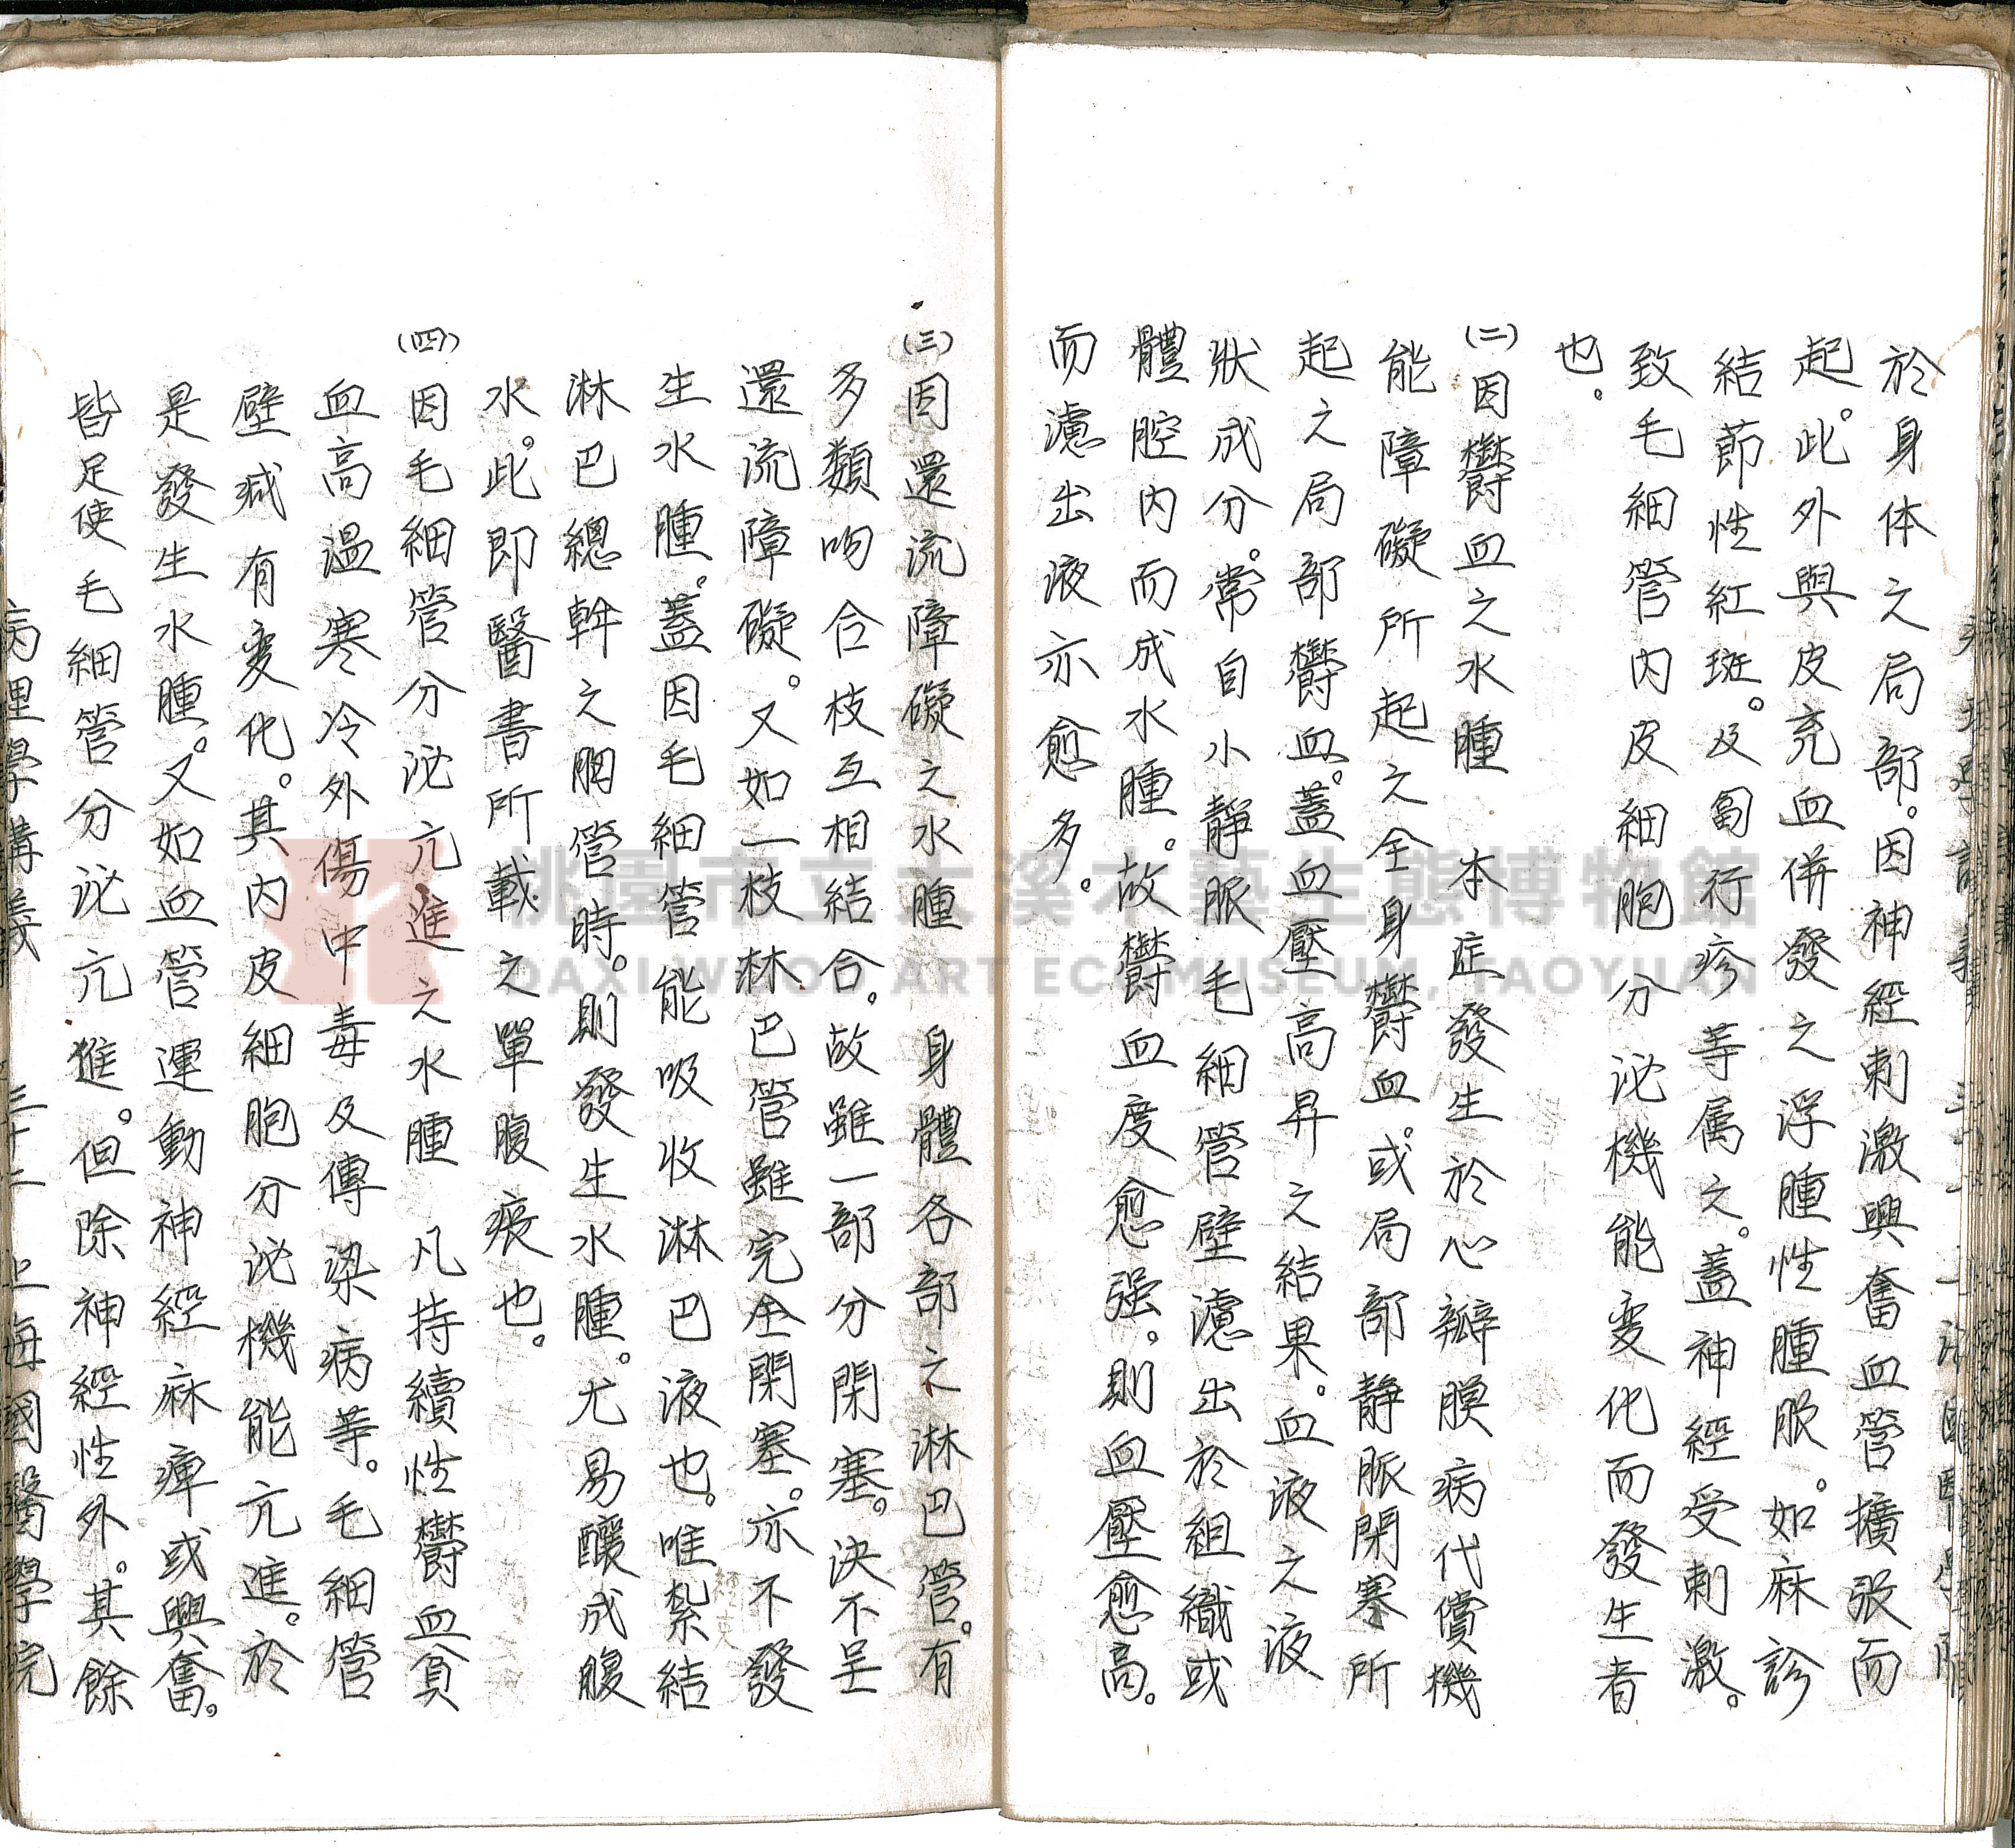 於身体之局部。因神經刺激興奮血管擴張而
起。此外與皮充血併發之浮腫性腫脹。如麻診
結節性紅斑。及匐行疹等属之。蓋神經受刺激。
致毛細管內皮細胞分泌機能变化而發生者
也。
(二)因欝血之水腫 本症發生於心瓣膜病代償機
能障礙所起之全身欝血。或局部靜脈閉塞所
起之局部欝血。蓋血壓高昇之結果。血液之液
狀成分。常自小靜脈毛細管壁濾出於組織或
體腔內而成水腫。故欝血度愈强。則血壓愈高。
而濾出液亦愈多。
(三)因還流障礙之水腫 身體各部之淋巴管。有
多類吻合枝互相結合。故雖一部分閉塞。決不呈
還流障礙。又如一枝淋巴管雖完全閉塞。亦不發
生水腫。蓋因毛細管能吸收淋巴液也。唯紮結
淋巴總幹之胸管時。則發生水腫。尤易釀成腹
水。此即醫書所載之單腹痕也。
(四)因毛細管分泌亢進之水腫 凡持續性欝血貧
血高溫寒冷外傷中毒及傳染病等。毛細管
壁減有变化。其內皮細胞分泌機能亢進。於
是發生水腫。又如血管運動神經麻痺或興奮。
皆足使毛細管分泌亢進。但除神經性外。其餘
病理學講義 三十二 上海國醫學院
桃園市立大溪木藝生態博物館
DAXI WOOD ART ECOMUSEUM, TAOYUAN